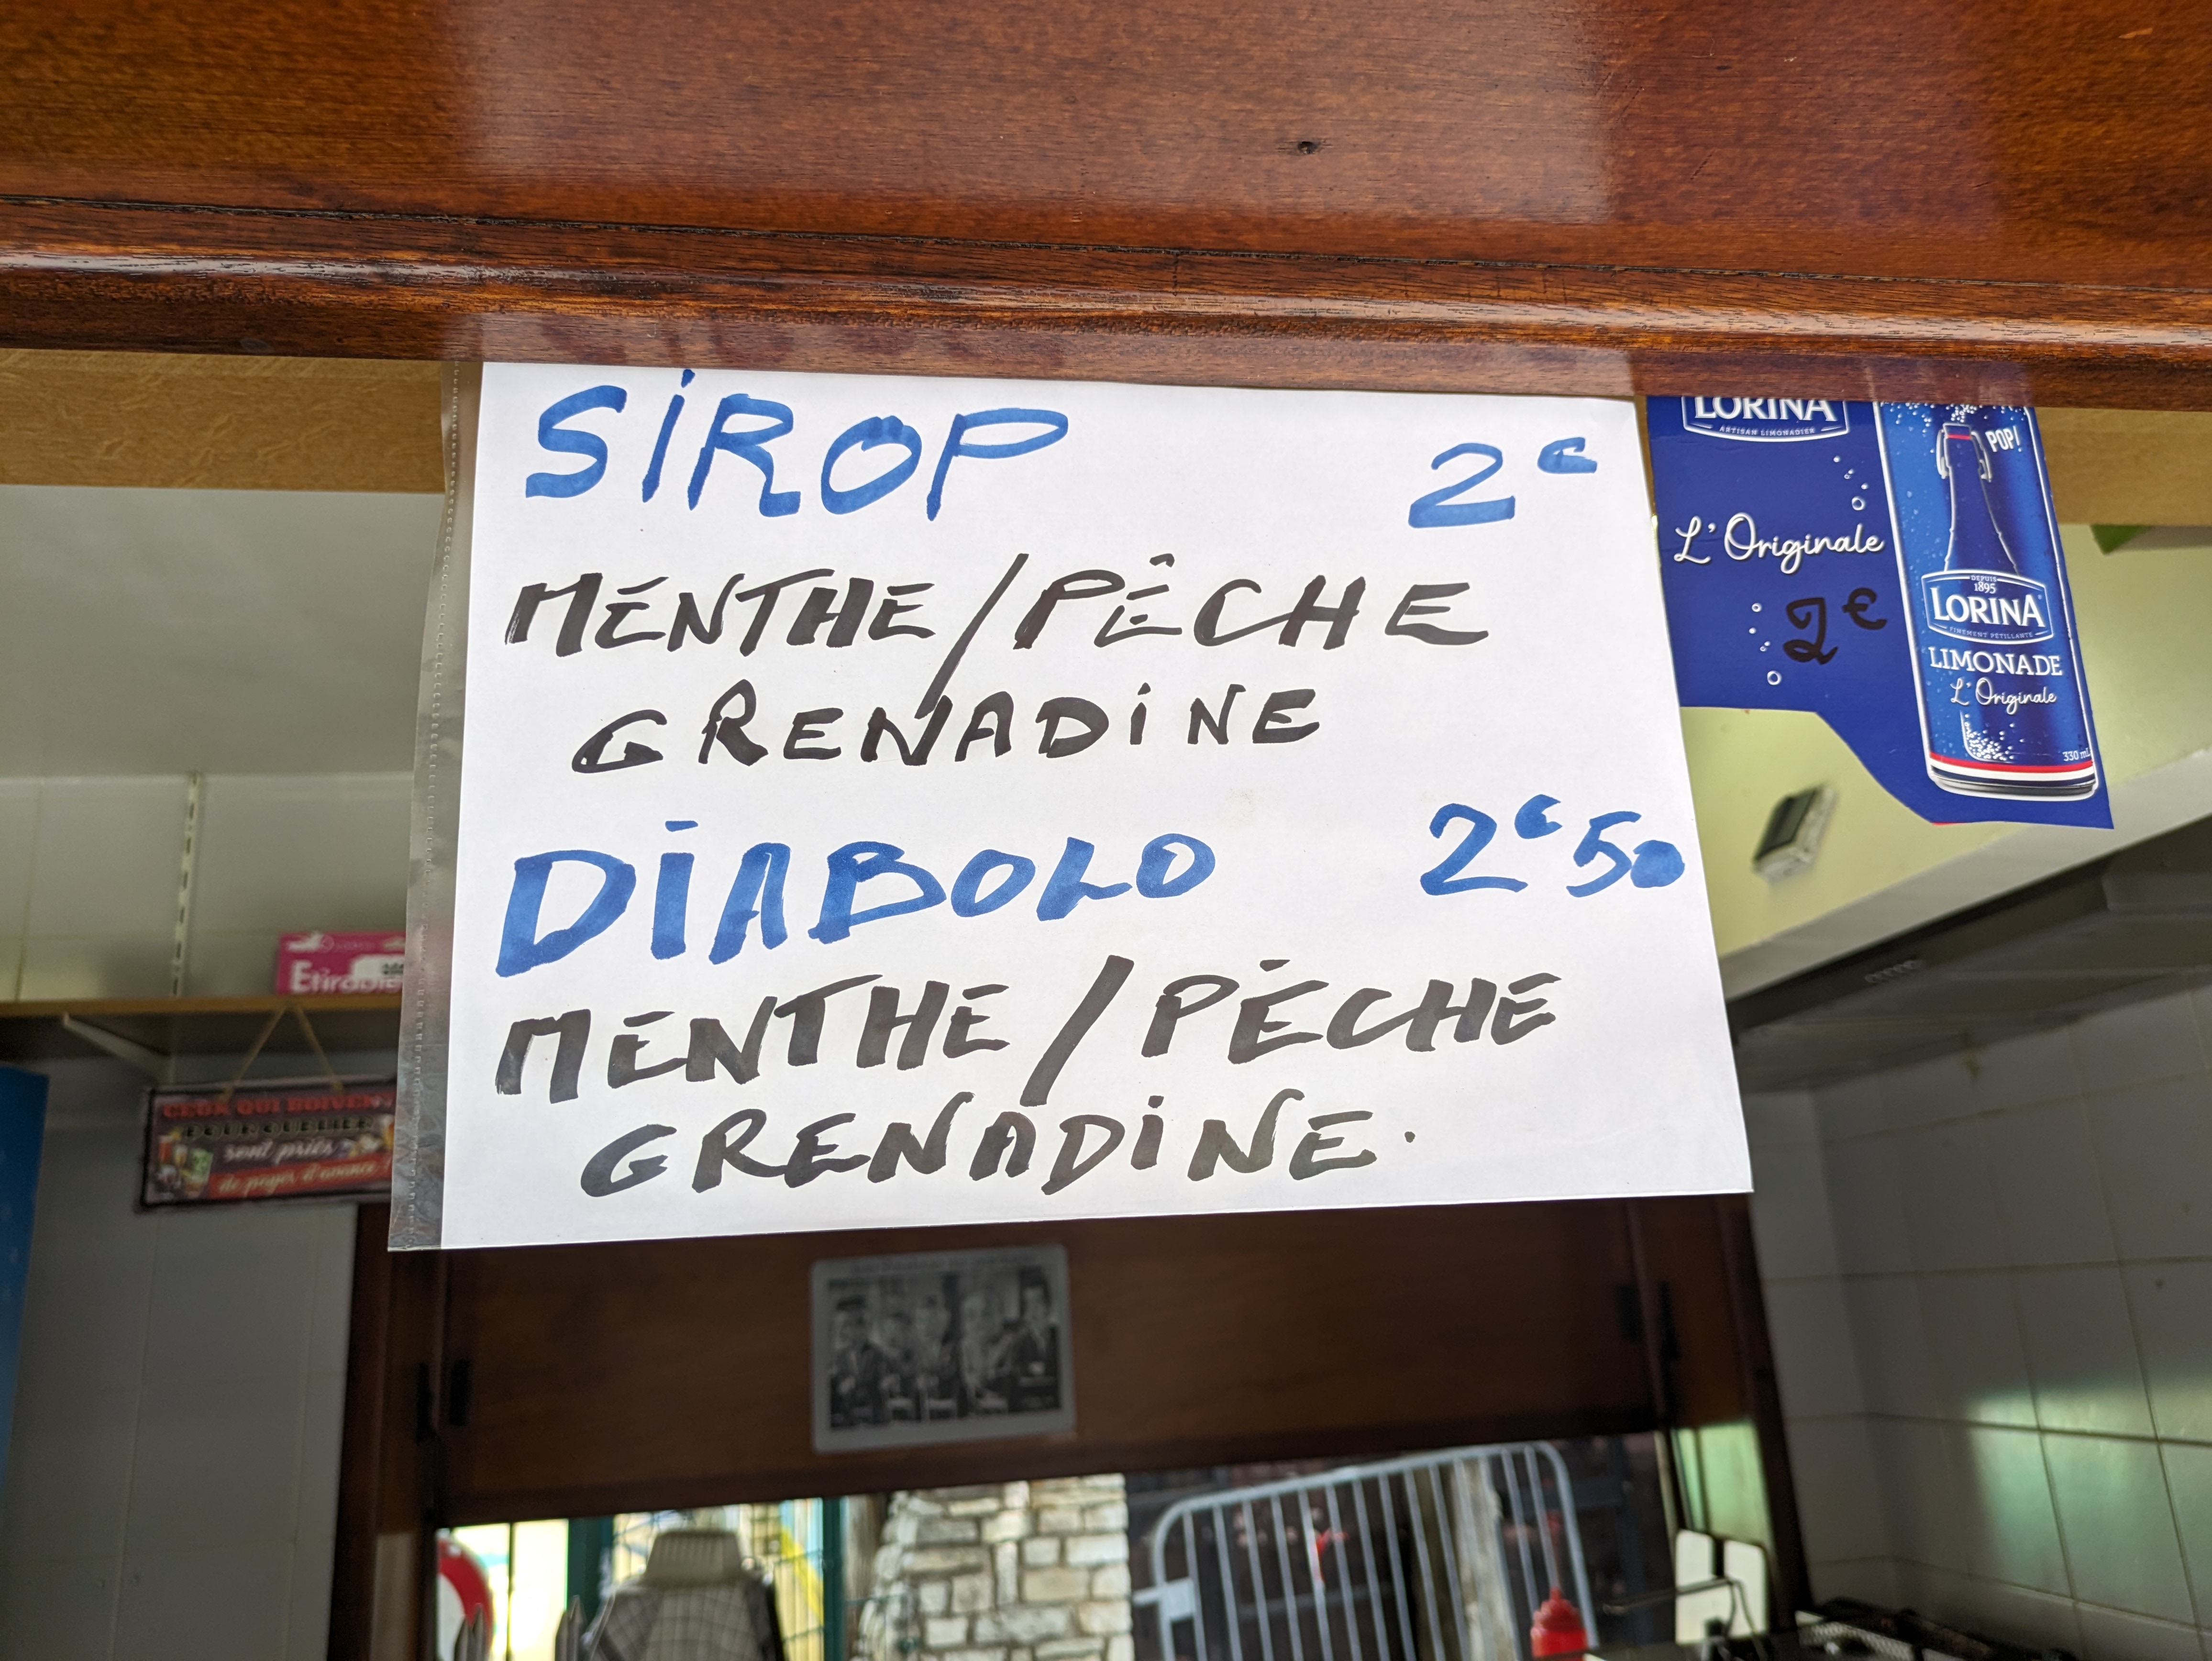 SiROP 2€
MENTHE/PÊCHE
GRENADiNE
DIABOLO 2€50
MENTHE/PÊCHE
GRENADiNE.
LORINA
ARTISAN LIMONADIER
L'Originale
2€
POP!
DEPUIS
1895
LORINA
FINEMENT PÉTILLANTE
LIMONADE
L'Originale
330 mL
Etirable
CEUX QUI BOIVENT
POUR OUBLIER
sont priés
de payer d'avance !